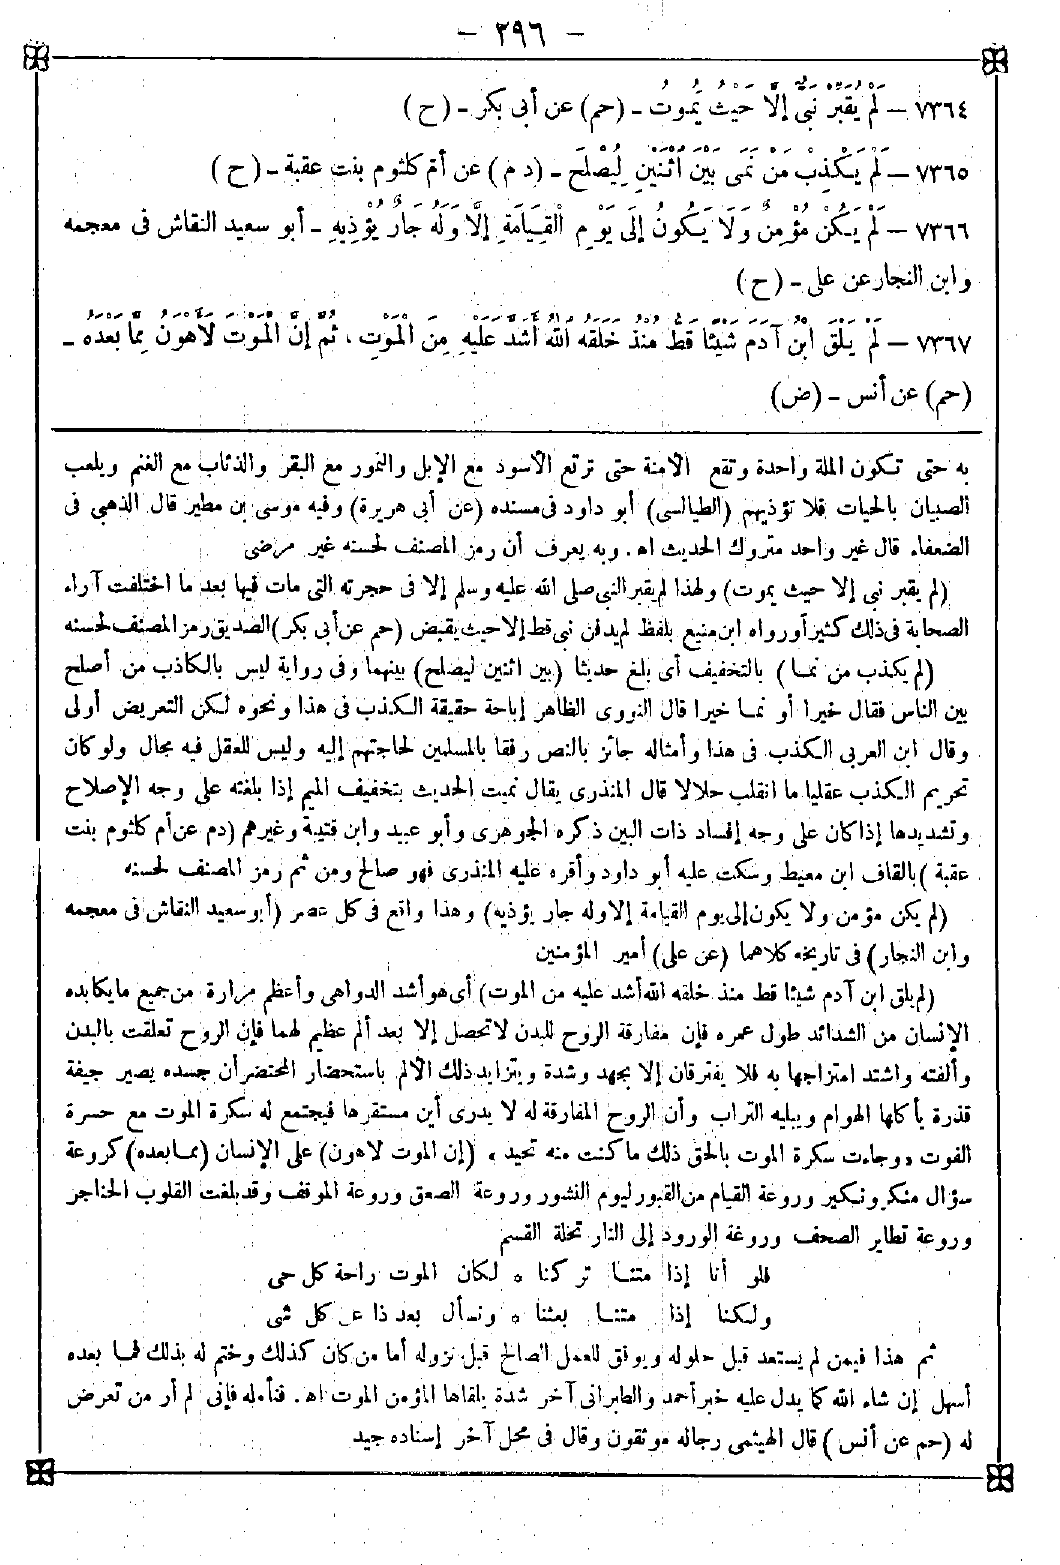 - ٣٩٦ -
٧٣٦٤ - لَمْ يُقْبَرْ نَبِيٌّ إِلَّا حَيْثُ يَمُوتُ - (حم) عن أبى بكر - (ح)
٧٣٦٥ - لَمْ يَكْذِبْ مَنْ نَمَى بَيْنَ اثْنَيْنِ لِيُصْلِحَ - (د م) عن أم كلثوم بنت عقبة - (ح)
٧٣٦٦ - لَمْ يَكُنْ مُؤْمِنٌ وَلَا يَكُونُ إِلَى يَوْمِ الْقِيَامَةِ إِلَّا وَلَهُ جَارٌ يُؤْذِيهِ - أبو سعيد النقاش فى معجمه
وابن النجار عن على - (ح)
٧٣٦٧ - لَمْ يَلْقَ ابْنُ آدَمَ شَيْئًا قَطُّ مُنْذُ خَلَقَهُ اللهُ أَشَدَّ عَلَيْهِ مِنَ الْمَوْتِ ، ثُمَّ إِنَّ الْمَوْتَ لَأَهْوَنُ مِمَّا بَعْدَهُ -
(حم) عن أنس - (ض)
به حتى تكون الملة واحدة وتقع الأمنة حتى ترتع الأسود مع الإبل والنمور مع البقر والذئاب مع الغنم ويلعب
الصبيان بالحيات فلا تؤذيهم (الطيالسى) أبو داود فى مسنده (عن أبى هريرة) وفيه موسى بن مطير قال الذهبى فى
الضعفاء قال غير واحد متروك الحديث اه. وبه يعرف أن رمز المصنف لحسنه غير مرضى
(لم يقبر نبى إلا حيث يموت) ولهذا لم يقبر النبى صلى الله عليه وسلم إلا فى حجرته التى مات فيها بعد ما اختلفت آراء
الصحابة فى ذلك كثيرا ورواه ابن منيع بلفظ لم يدفن نبى قط إلا حيث يقبض (حم عن أبى بكر) الصديق رمز المصنف لحسنه
(لم يكذب من نمـا) بالتخفيف أى بلغ حديثا (بين اثنين ليصلح) بينهما وفى رواية ليس بالكاذب من أصلح
بين الناس فقال خيرا أو نمـا خيرا قال النووى الظاهر إباحة حقيقة الكذب فى هذا ونحوه لكن التعريض أولى
وقال ابن العربى الكذب فى هذا وأمثاله جائز بالنص رفقا بالمسلمين لحاجتهم إليه وليس للعقل فيه مجال ولو كان
تحريم الكذب عقليا ما انقلب حلالا قال المنذرى يقال نميت الحديث بتخفيف الميم إذا بلغته على وجه الإصلاح
وتشديدها إذا كان على وجه إفساد ذات البين ذكره الجوهرى وأبو عبيد وابن قتيبة وغيرهم (دم عن أم كلثوم بنت
عقبة) بالقاف ابن معيط وسكت عليه أبو داود وأقره عليه المنذرى فهو صالح ومن ثم رمز المصنف لحسنه
(لم يكن مؤمن ولا يكون إلى يوم القيامة إلا وله جار يؤذيه) وهذا واقع فى كل عصر (أبو سعيد النقاش فى معجمه
وابن النجار) فى تاريخه كلاهما (عن على) أمير المؤمنين
(لم يلق ابن آدم شيئا قط منذ خلقه الله أشد عليه من الموت) أى هو أشد الدواهى وأعظم مرارة من جميع ما يكابده
الإنسان من الشدائد طول عمره فإن مفارقة الروح للبدن لا تحصل إلا بعد ألم عظيم لهما فإن الروح تعلقت بالبدن
وألفته واشتد امتزاجها به فلا يفترقان إلا بجهد وشدة ويتزايد ذلك الألم باستحضار المحتضر أن جسده يصير جيفة
قذرة يأكلها الهوام ويبليه التراب وأن الروح المفارقة له لا يدرى أين مستقرها فيجتمع له سكرة الموت مع حسرة
الفوت «وجاءت سكرة الموت بالحق ذلك ما كنت منه تحيد» (إن الموت لأهون) على الإنسان (ممـا بعده) كروعة
سؤال منكر ونكير وروعة القيام من القبور ليوم النشور وروعة الصعق وروعة الموقف وقد بلغت القلوب الحناجر
وروعة تطاير الصحف وروعة الورود إلى النار تحلة القسم
فلو أنا إذا متنـا تركنا ه لكان الموت راحة كل حى
ولكنا إذا متنـا بعثنا ه ونسأل بعد ذا عن كل شى
ثم هذا فيمن لم يستعد قبل حلوله ويوفق للعمل الصالح قبل نزوله أما من كان كذلك وختم له بذلك فمـا بعده
أسهل إن شاء الله كما يدل عليه خبر أحمد والطبرانى آخر شدة يلقاها المؤمن الموت اه. فتأمله فإنى لم أر من تعرض
له (حم عن أنس) قال الهيثمى رجاله موثقون وقال فى محل آخر إسناده جيد